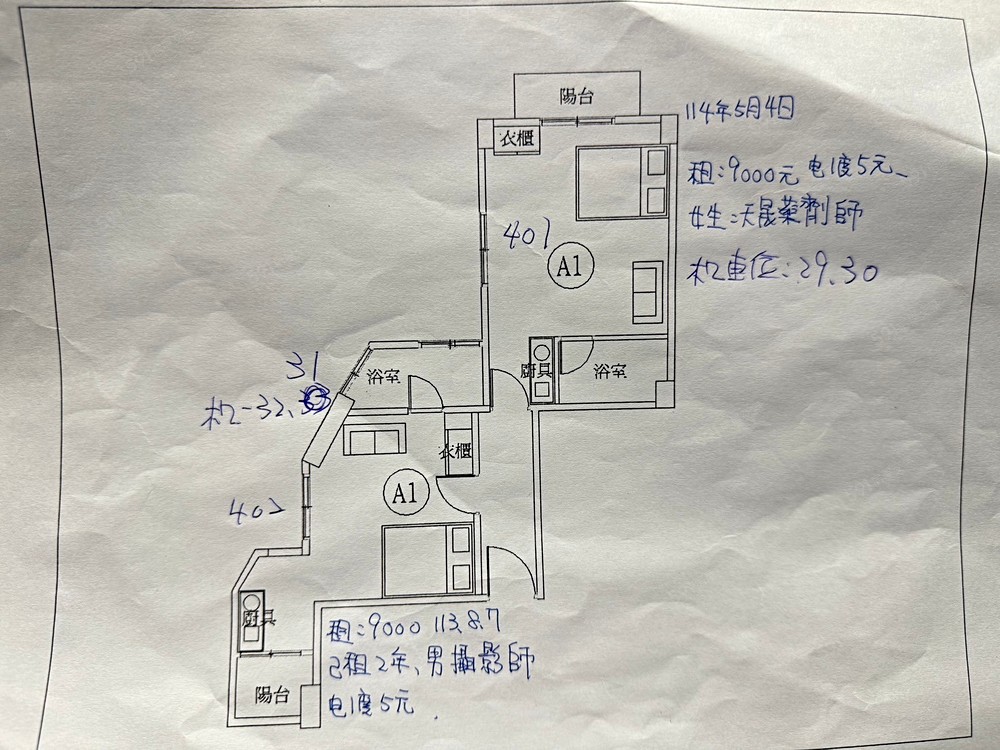 陽台
114年5月4日
衣櫃
租:9000元 电1度5元、
女生:天晟藥劑師
401
A1
机車位:29.30
31
廚具
浴室
浴室
机-32、
衣櫃
A1
402
廚具
租:9000 113.8.7
已租2年、男攝影師
陽台
电1度5元.